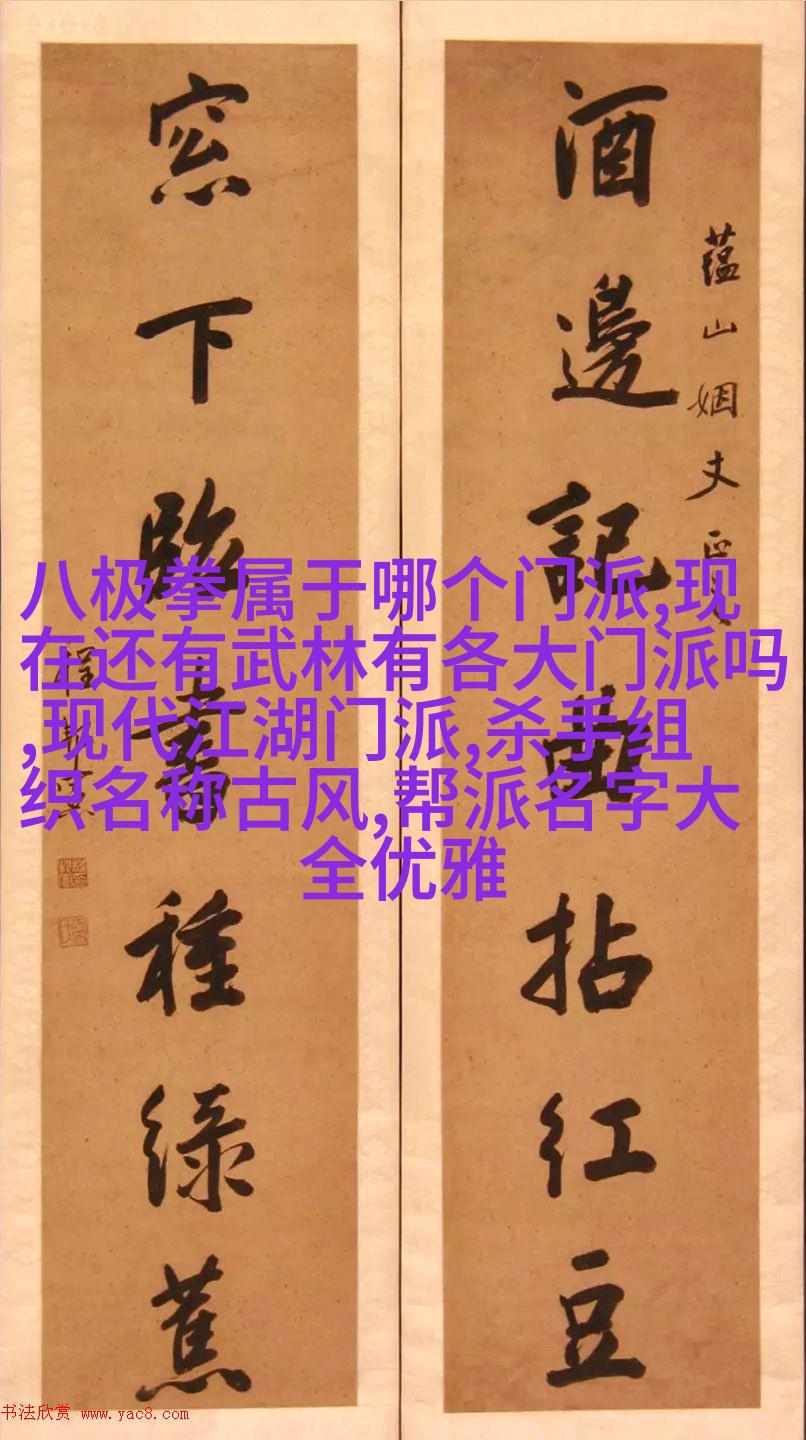 酒邊記曲拈紅豆
蘊山姻丈正
窓下臨書種綠蕉
八极拳属于哪个门派,现
在还有武林有各大门派吗
,现代江湖门派,杀手组
织名称古风,帮派名字大
全优雅
书法欣赏 www.yac8.com